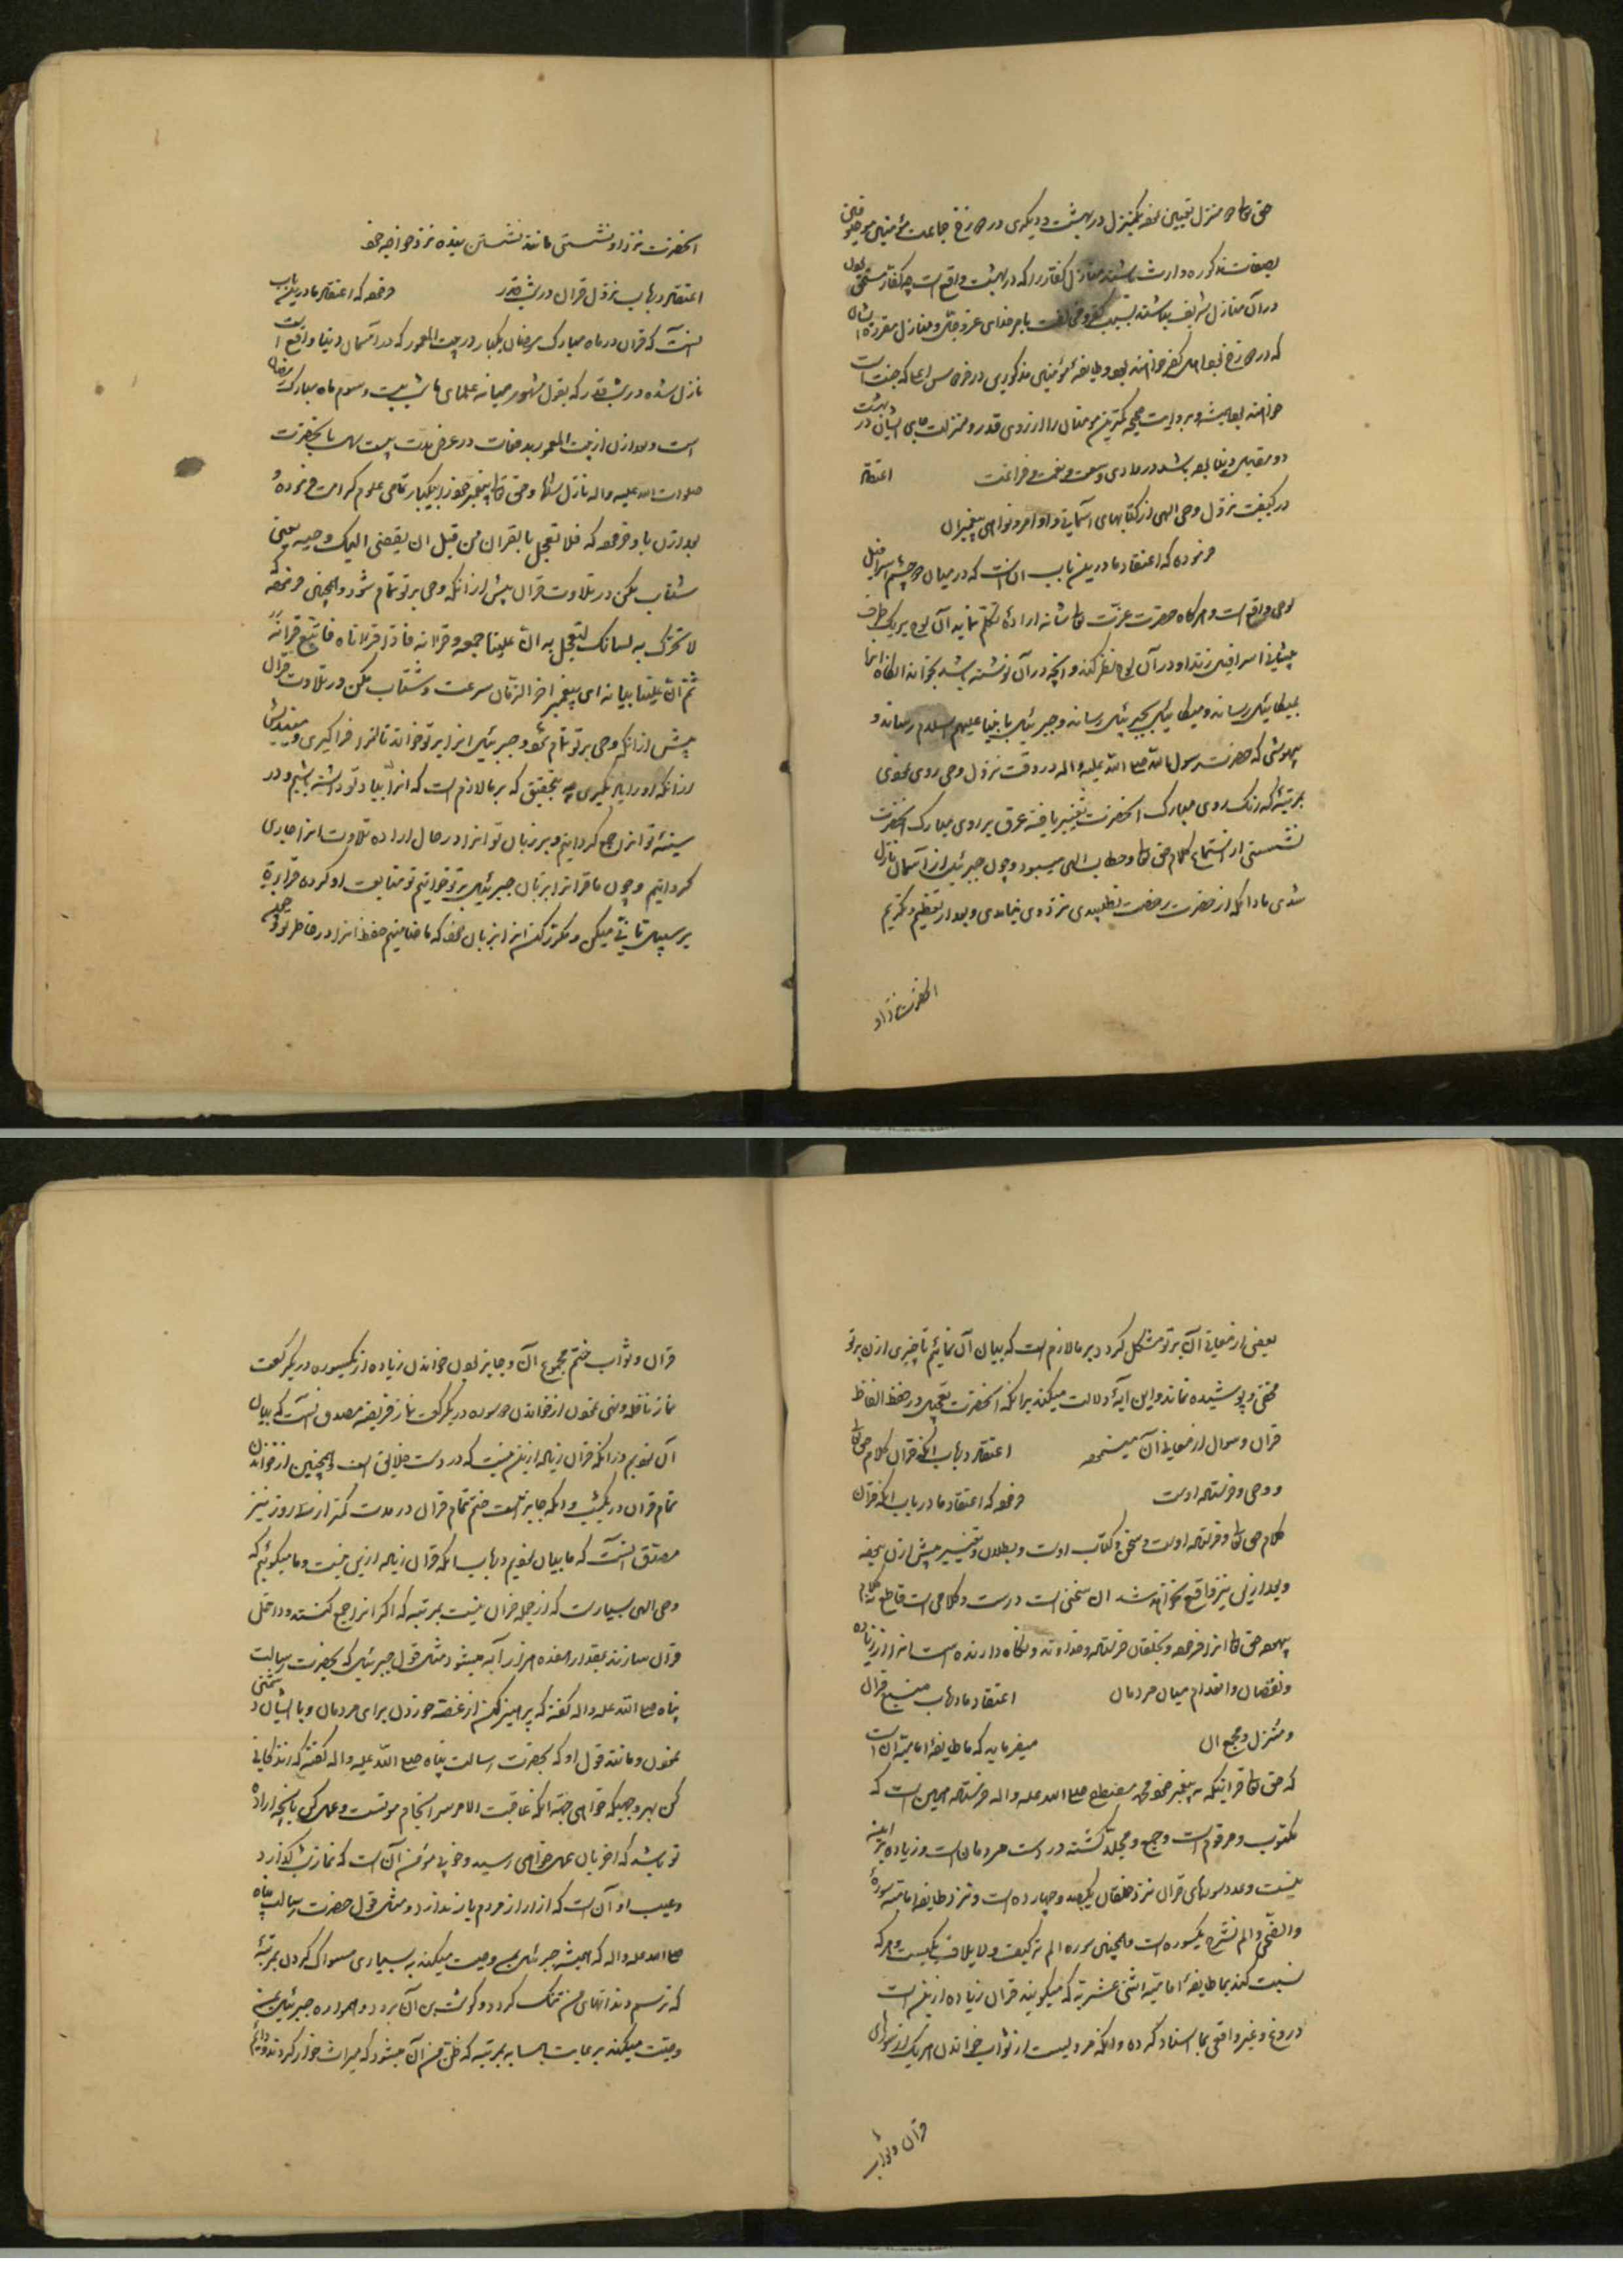 حق تعالی دو منزل تعیین نموده یکمنزل در بهشت و دیگری در دوزخ جماعت مؤمنین موصوفین
بصفات مذکوره وارث باشند منازل کفار را که در بهشت واقع است چه کفار مستحق
در آن منازل شریف نباشند بسبب کفر و مخالفت بامر خدای عز و جل و منازل مقرره
که در دوزخ
خواهند بود و بروایت صحیحه کمترین مؤمنان را از روی قدر و منزلت جای ایشان در بهشت
دو مقابل دنیا بوده باشد در شادی و وسعت و نعمت و فراغت اعتقاد
در کیفیت نزول وحی الهی از کتابهای آسمانی و اوامر و نواهی پیغمبران
فرموده که اعتقاد ما درین باب آن است که در میان دو چشم اسرافیل
لوحی واقع است و هرگاه حضرت عزت تعالی شانه اراده تکلم نماید آن لوح بر یک طرف
پیشانی اسرافیل زند او در آن لوح نظر کند و آنچه در آن نوشته باشد بخواند آنگاه آنرا
بمیکائیل رساند و میکائیل بجبرئیل رساند و جبرئیل بانبیا علیهم السلام رساند و
بیهوشی که حضرت رسول الله صلی الله علیه و اله در وقت نزول وحی روی نمودی
بمرتبه که رنگ روی مبارک آنحضرت تغییر یافته عرق بر روی مبارک آنحضرت
نشستی از استماع کلام حق تعالی و خطاب الهی میبود و چون جبرئیل از آسمان نازل
شدی مادامکه از حضرت رخصت نطلبیدی نزد وی نیامدی و بعد از تعظیم و تکریم
آنحضرت نزد او
آنحضرت نزد او نشستی مانند نشستن بنده نزد خواجه خود
اعتقاد در باب نزول قران در شب قدر فرموده که اعتقاد ما درین باب
آنست که قران در ماه مبارک رمضان یکبار در بیت المعمور که در آسمان دنیا واقع است
نازل شده در شب قدر که بقول مشهور میانه علمای ما شب بیست و سوم ماه مبارک رمضان
است و بعد از آن از بیت المعمور بدفعات در عرض مدت بیست سال بآنحضرت
صلوات الله علیه و اله نازل شد و حق تعالی پیغمبر خود را بیکبار تمامی علوم کرامت فرموده
بعد از آن باو فرموده که فلا تعجل بالقران من قبل ان یقضی الیک وحیه یعنی
شتاب مکن در تلاوت قران پیش از آنکه وحی بر تو تمام شود و همچنین فرموده که
لا تحرک به لسانک لتعجل به ان علینا جمعه و قرانه فاذا قراناه فاتبع قرانه
ثم ان علینا بیانه ای پیغمبر اخر الزمان سرعت و شتاب مکن در تلاوت قران
پیش از آنکه وحی بر تو تمام شود و جبرئیل انرا بر تو خواند تا آنرا فراگیری
از آنکه بتحقیق که بر ما لازم است که انرا بیاد تو داشته باشیم و در
سینه تو انرا جمع گردانیم و بر زبان تو انرا در حال اراده تلاوت انرا جاری
گردانیم و چون ما قران را بر زبان جبرئیل بر تو خوانیم تو متابعت او کرده قرائت
بر سبیل تانی میکن و مکرر کن انرا بزبان خود که ما ضامنیم حفظ انرا در خاطر تو و چون
بعضی از معانی آن بر تو مشکل گردد بر ما لازم است که بیان آن نمائیم تا چیزی از آن بر تو
مخفی و پوشیده نماند و این آیه دلالت میکند بر آنکه آنحضرت تعجیل در حفظ الفاظ
قران و سوال از معانی آن مینموده اعتقاد در باب آنکه قران کلام حق تعالی
و وحی و فرستاده اوست فرموده که اعتقاد ما در باب آنکه قران
کلام حق تعالی و فرستاده اوست و سخن و کتاب اوست و بطلان و تغییر پیش از آن نبوده
و بعد ازین نیز واقع نخواهد شد آن سخنی است درست و کلامی است قاطع
حق تعالی انرا فرموده و بخلقان فرستاده و خداوند و نگاه دارنده است انرا از زیاده
و نقصان و انعدام میان مردمان اعتقاد ما در باب مبلغ قران
و منزل و مجمع آن میفرماید که ما طایفه امامیه آن است
که حق تعالی قرانیکه به پیغمبر خود محمد مصطفی صلی الله علیه و اله فرستاده همین است که
مکتوب و مرقوم است و جمع و مجلد گشته در دست مردمان است و زیاده بر این
نیست و عدد سورهای قران نزد خلقان یکصد و چهارده است و نزد طایفه امامیه سوره
والضحی و الم نشرح یکسوره است و همچنین سوره الم تر کیف و لایلاف یکیست و هر که
نسبت کند بما طایفه امامیه اثنی عشریه که میگویند قران زیاده ازین است
دروغ و غیر واقعی بما اسناد کرده و آنکه مرویست از ثواب خواندن هر یک از سورهای
قران و ثواب
قران و ثواب ختم مجموع آن و جایز بودن خواندن زیاده از یکسوره در یکرکعت
نماز نافله و نهی نمودن از خواندن دو سوره در یکرکعت نماز فریضه مصدق آنست که بیان
آن نمودیم در آنکه قران زیاده ازین نیست که در دست خلایق است و همچنین از خواندن
تمام قران در یکشب و آنکه جایز نیست ختم تمام قران در مدت کمتر از سه روز نیز
مصدق آنست که ما بیان نمودیم در باب آنکه قران زیاده ازین نیست و ما میگوئیم که
وحی الهی بسیار است که از جمله قران نیست بمرتبه که اگر انرا جمع کنند و داخل
قران سازند بمقدار هفده هزار آیه میشود مثل قول جبرئیل که بحضرت رسالت
پناه صلی الله علیه و اله گفته که پرهیز کن از غصه خوردن برای مردمان و با ایشان دشمنی
نمودن و مانند قول او که بحضرت رسالت پناه صلی الله علیه و اله گفته که زندگانی
کن بهر وجهیکه خواهی آنکه عاقبت الامر سر انجام موتست و عمل کن بآنچه اراده
تو باشد که اخر بآن عمل خواهی رسید و خوبی مؤمن آن است که نماز شب گذارد
و عیب او آن است که ازار از مردم باز ندارد و مثل قول حضرت رسالت پناه
صلی الله علیه و اله که همیشه جبرئیل وصیت میکند به بسیاری مسواک کردن بمرتبه
که ترسم دندانهای من تنک گردد و گوشت بن آن برود و همواره جبرئیل
وصیت میکند برعایت همسایه بمرتبه که ظن من آن میشود که میراث خوار گردند